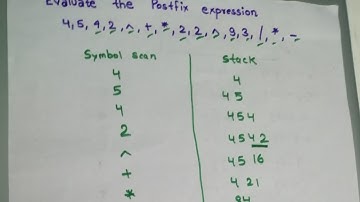 Evaluate the Postfix expression
4, 5, 4, 2, ^, +, *, 2, 2, ^, 9, 3, /, *, -
Symbol scan Stack
4 4
5 4 5
4 4 5 4
2 4 5 4 2
^ 4 5 16
+ 4 21
* 84